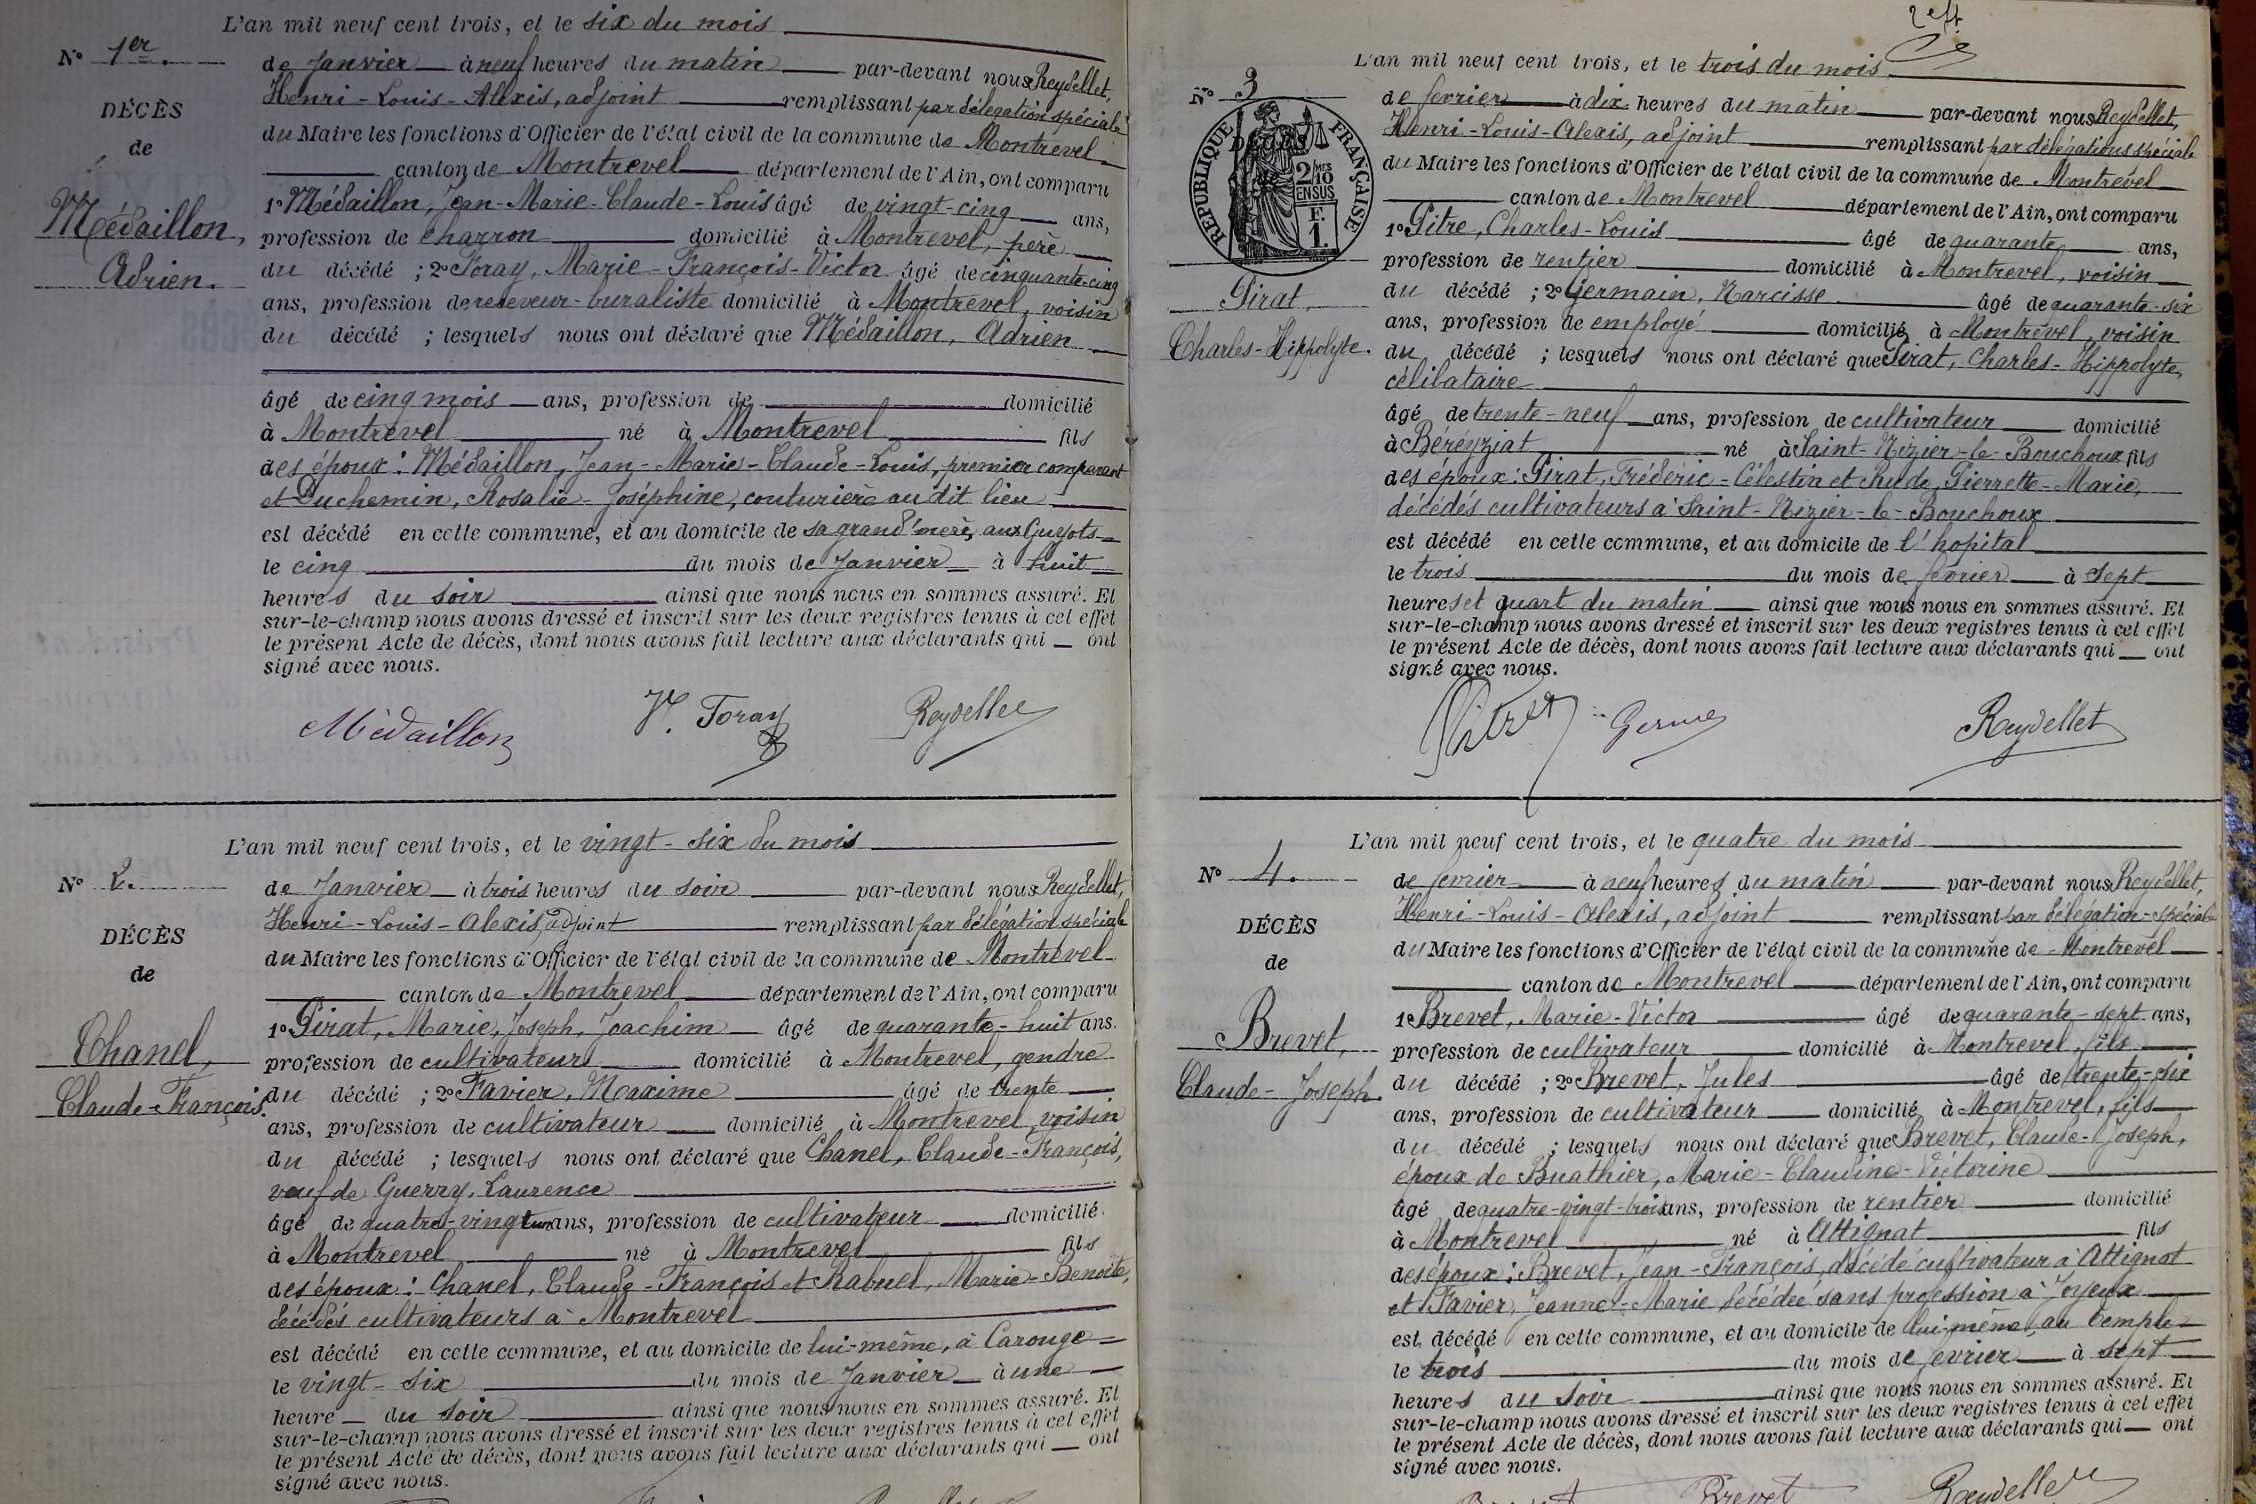 L'an mil neuf cent trois, et le six du mois
N° 1er.
de Janvier à neuf heures du matin par-devant nous Reydellet,
Henri-Louis-Alexis, adjoint remplissant par délégation spéciale
DÉCÈS
du Maire les fonctions d'Officier de l'état civil de la commune de Montrevel
de
canton de Montrevel département de l'Ain, ont comparu
Médaillon,
1° Médaillon, Jean-Marie-Claude-Louis âgé de vingt-cinq ans,
profession de charron domicilié à Montrevel, père
Adrien.
du décédé ; 2° Foray, Marie-François-Victor âgé de cinquante-cinq
ans, profession de receveur-buraliste domicilié à Montrevel, voisin
du décédé ; lesquels nous ont déclaré que Médaillon, Adrien
âgé de cinq mois ans, profession de domicilié
à Montrevel né à Montrevel fils
des époux : Médaillon, Jean-Marie-Claude-Louis, premier comparant
et Duchemin, Rosalie-Joséphine, couturière au dit lieu
est décédé en cette commune, et au domicile de sa grand'mère, aux Guyots
le cinq du mois de Janvier à huit
heures du soir ainsi que nous nous en sommes assuré. Et
sur-le-champ nous avons dressé et inscrit sur les deux registres tenus à cet effet
le présent Acte de décès, dont nous avons fait lecture aux déclarants qui ont
signé avec nous.
Médaillon V. Foray Reydellet
L'an mil neuf cent trois, et le vingt-six du mois
N° 2.
de Janvier à trois heures du soir par-devant nous Reydellet,
Henri-Louis-Alexis, adjoint remplissant par délégation spéciale
DÉCÈS
du Maire les fonctions d'Officier de l'état civil de la commune de Montrevel
de
canton de Montrevel département de l'Ain, ont comparu
Chanel,
1° Pirat, Marie, Joseph, Joachim âgé de quarante-huit ans.
profession de cultivateur domicilié à Montrevel, gendre
Claude-François.
du décédé ; 2° Favier, Maxime âgé de trente
ans, profession de cultivateur domicilié à Montrevel, voisin
du décédé ; lesquels nous ont déclaré que Chanel, Claude-François,
veuf de Guerry, Laurence
âgé de quatre-vingt ans, profession de cultivateur domicilié
à Montrevel né à Montrevel fils
des époux : Chanel, Claude-François et Rabuel, Marie-Benoîte,
décédés cultivateurs à Montrevel
est décédé en cette commune, et au domicile de lui-même, à Carouge
le vingt-six du mois de Janvier à une
heure du soir ainsi que nous nous en sommes assuré. Et
sur-le-champ nous avons dressé et inscrit sur les deux registres tenus à cet effet
le présent Acte de décès, dont nous avons fait lecture aux déclarants qui ont
signé avec nous.
2e ft.
L'an mil neuf cent trois, et le trois du mois
N° 3
de février à dix heures du matin par-devant nous Reydellet,
Henri-Louis-Alexis, adjoint remplissant par délégation spéciale
RÉPUBLIQUE FRANÇAISE
DÉCÈS
2/10 MES
EN SUS
F.
1.
du Maire les fonctions d'Officier de l'état civil de la commune de Montrevel
canton de Montrevel département de l'Ain, ont comparu
1° Pitre, Charles-Louis âgé de quarante ans,
profession de rentier domicilié à Montrevel, voisin
Pirat,
du décédé ; 2° Germain, Narcisse âgé de quarante-six
ans, profession de employé domicilié à Montrevel, voisin
Charles-Hippolyte.
du décédé ; lesquels nous ont déclaré que Pirat, Charles-Hippolyte,
célibataire
âgé de trente-neuf ans, profession de cultivateur domicilié
à Béréyziat né à Saint-Nizier-le-Bouchoux fils
des époux : Pirat, Frédéric-Célestin et Rude, Pierrette-Marie,
décédés cultivateurs à Saint-Nizier-le-Bouchoux
est décédé en cette commune, et au domicile de l'hopital
le trois du mois de février à sept
heures et quart du matin ainsi que nous nous en sommes assuré. Et
sur-le-champ nous avons dressé et inscrit sur les deux registres tenus à cet effet
le présent Acte de décès, dont nous avons fait lecture aux déclarants qui ont
signé avec nous.
Reydellet
L'an mil neuf cent trois, et le quatre du mois
N° 4.
de février à neuf heures du matin par-devant nous Reydellet,
Henri-Louis-Alexis, adjoint remplissant par délégation-spéciale
DÉCÈS
du Maire les fonctions d'Officier de l'état civil de la commune de Montrevel
de
canton de Montrevel département de l'Ain, ont comparu
Brevet,
1° Brevet, Marie-Victor âgé de quarante-sept ans,
profession de cultivateur domicilié à Montrevel, fils
Claude-Joseph.
du décédé ; 2° Brevet, Jules âgé de trente-six
ans, profession de cultivateur domicilié à Montrevel, fils
du décédé ; lesquels nous ont déclaré que Brevet, Claude-Joseph,
époux de Buathier, Marie-Claudine-Victorine
âgé de quatre-vingt-trois ans, profession de rentier domicilié
à Montrevel né à Attignat fils
des époux : Brevet, Jean-François, décédé cultivateur à Attignat
et Favier, Jeanne-Marie décédée sans profession à Joyeux
est décédé en cette commune, et au domicile de lui-même, au Temple
le trois du mois de février à sept
heures du soir ainsi que nous nous en sommes assuré. Et
sur-le-champ nous avons dressé et inscrit sur les deux registres tenus à cet effet
le présent Acte de décès, dont nous avons fait lecture aux déclarants qui ont
signé avec nous.
Brevet Reydellet